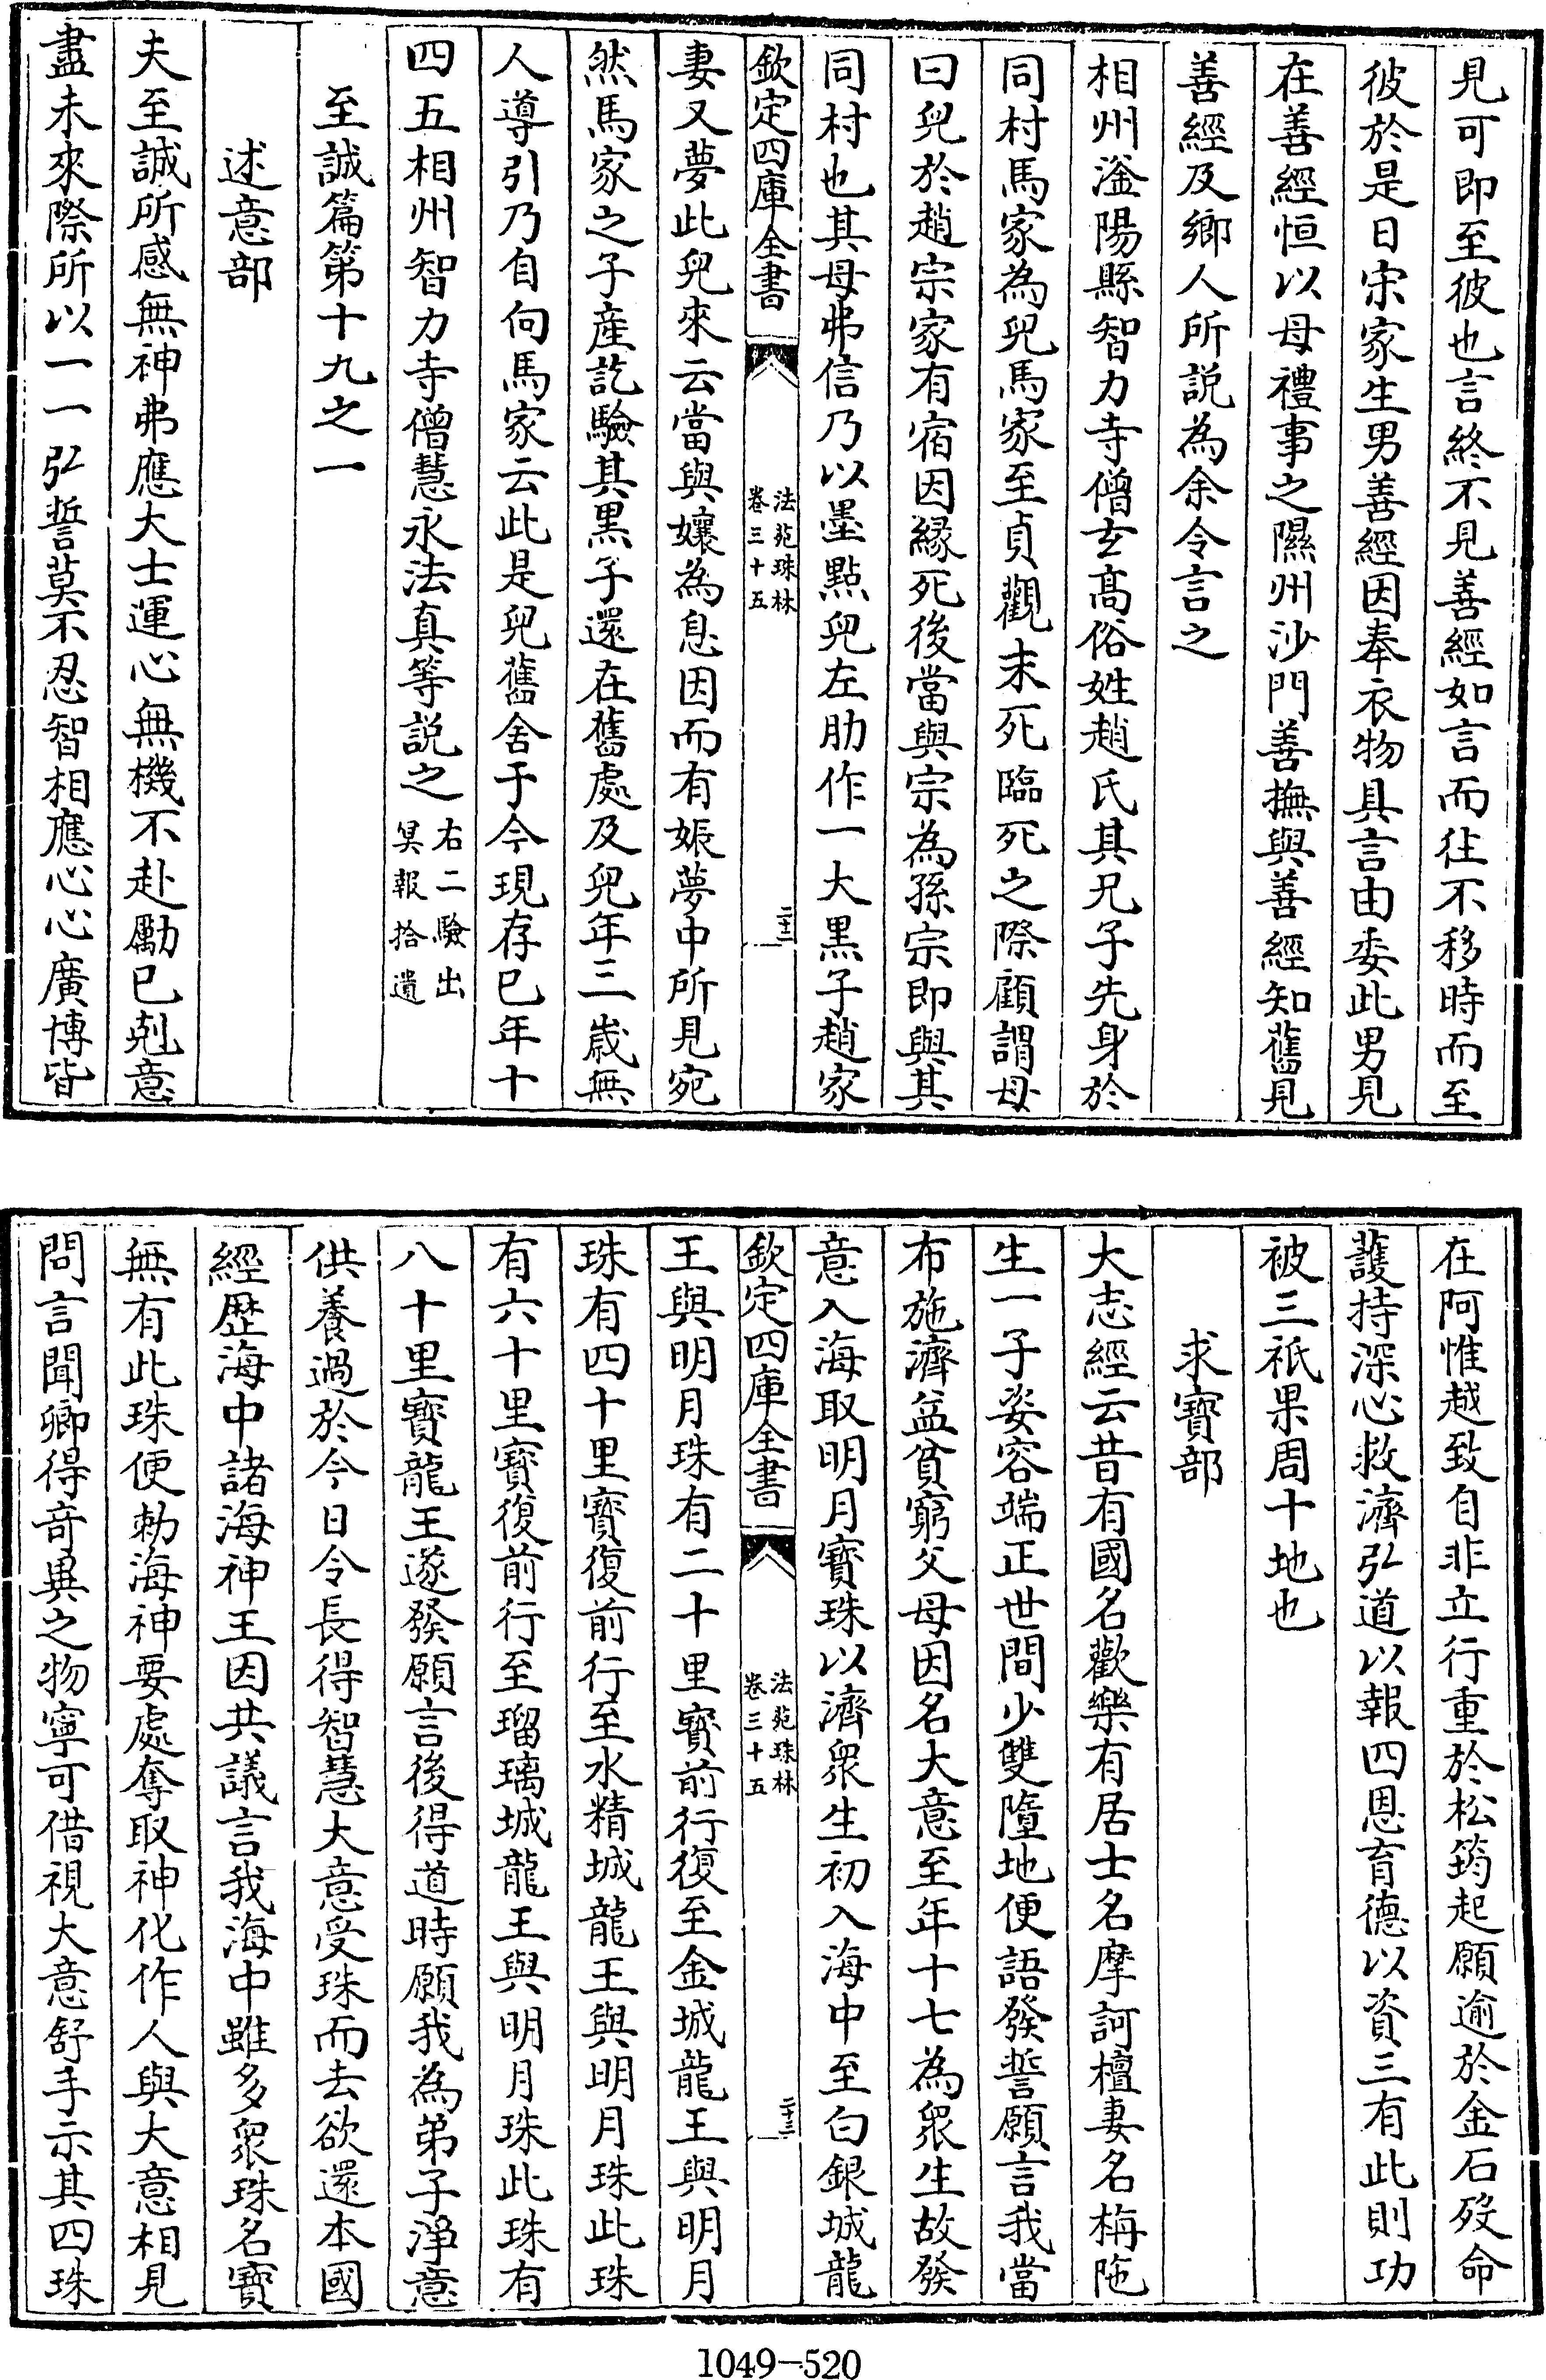 見可即至彼也言終不見善經如言而往不移時而至
彼於是日宋家生男善經因奉衣物具言由委此男見
在善經恒以母禮事之隰州沙門善撫與善經知舊見
善經及鄉人所説為余令言之
相州滏陽縣智力寺僧玄髙俗姓趙氏其兄子先身於
同村馬家為兒馬家至貞觀末死臨死之際顧謂母
曰兒於趙宗家有宿因緣死後當與宗為孫宗即與其
同村也其母弗信乃以墨點兒左肋作一大黒子趙家
欽定四庫全書
法苑珠林
卷三十五
二十二
妻又夢此兒來云當與孃為息因而有娠夢中所見宛
然馬家之子産訖驗其黒子還在舊處及兒年三歳無
人導引乃自向馬家云此是兒舊舍于今現存已年十
四五相州智力寺僧慧永法真等説之
右二驗出
冥報拾遺
至誠篇第十九之一
述意部
夫至誠所感無神弗應大士運心無機不赴勵已剋意
盡未來際所以一一弘誓莫不忍智相應心心廣博皆
在阿惟越致自非立行重於松筠起願逾於金石歿命
護持深心救濟弘道以報四恩育德以資三有此則功
被三祇果周十地也
求寳部
大志經云昔有國名歡樂有居士名摩訶檀妻名栴陁
生一子姿容端正世間少雙墮地便語發誓願言我當
布施濟益貧窮父母因名大意至年十七為衆生故發
意入海取明月寳珠以濟衆生初入海中至白銀城龍
欽定四庫全書
法苑珠林
卷三十五
二十三
王與明月珠有二十里寳前行復至金城龍王與明月
珠有四十里寳復前行至水精城龍王與明月珠此珠
有六十里寳復前行至瑠璃城龍王與明月珠此珠有
八十里寳龍王遂發願言後得道時願我為弟子淨意
供養過於今日令長得智慧大意受珠而去欲還本國
經歴海中諸海神王因共議言我海中雖多衆珠名寳
無有此珠便勅海神要處奪取神化作人與大意相見
問言聞卿得竒異之物寧可借視大意舒手示其四珠
1049-520